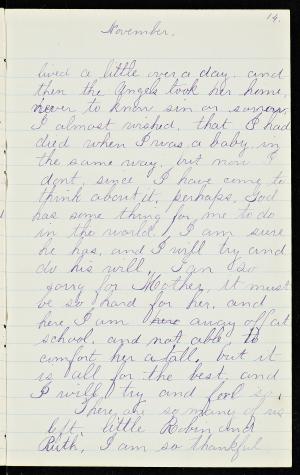 14.
November.
lived a little over a day. and
then the Angels took her home,
never to know sin or sorrow.
I almost wished, that I had
died when I was a baby, in
the same way, but now I
dont, since I have come to
think about it, perhaps, God
has some thing for me to do
in the world, I am sure
he has, and I will try and
do his will, I am so
sorry for Mother, it must
be so hard for her, and
here I am here away off at
school, and not able to
comfort her atall, but it
is all for the best, and
I will try and feel so.
There are so many of us
left, little Robin and
Ruth, I am so thankful